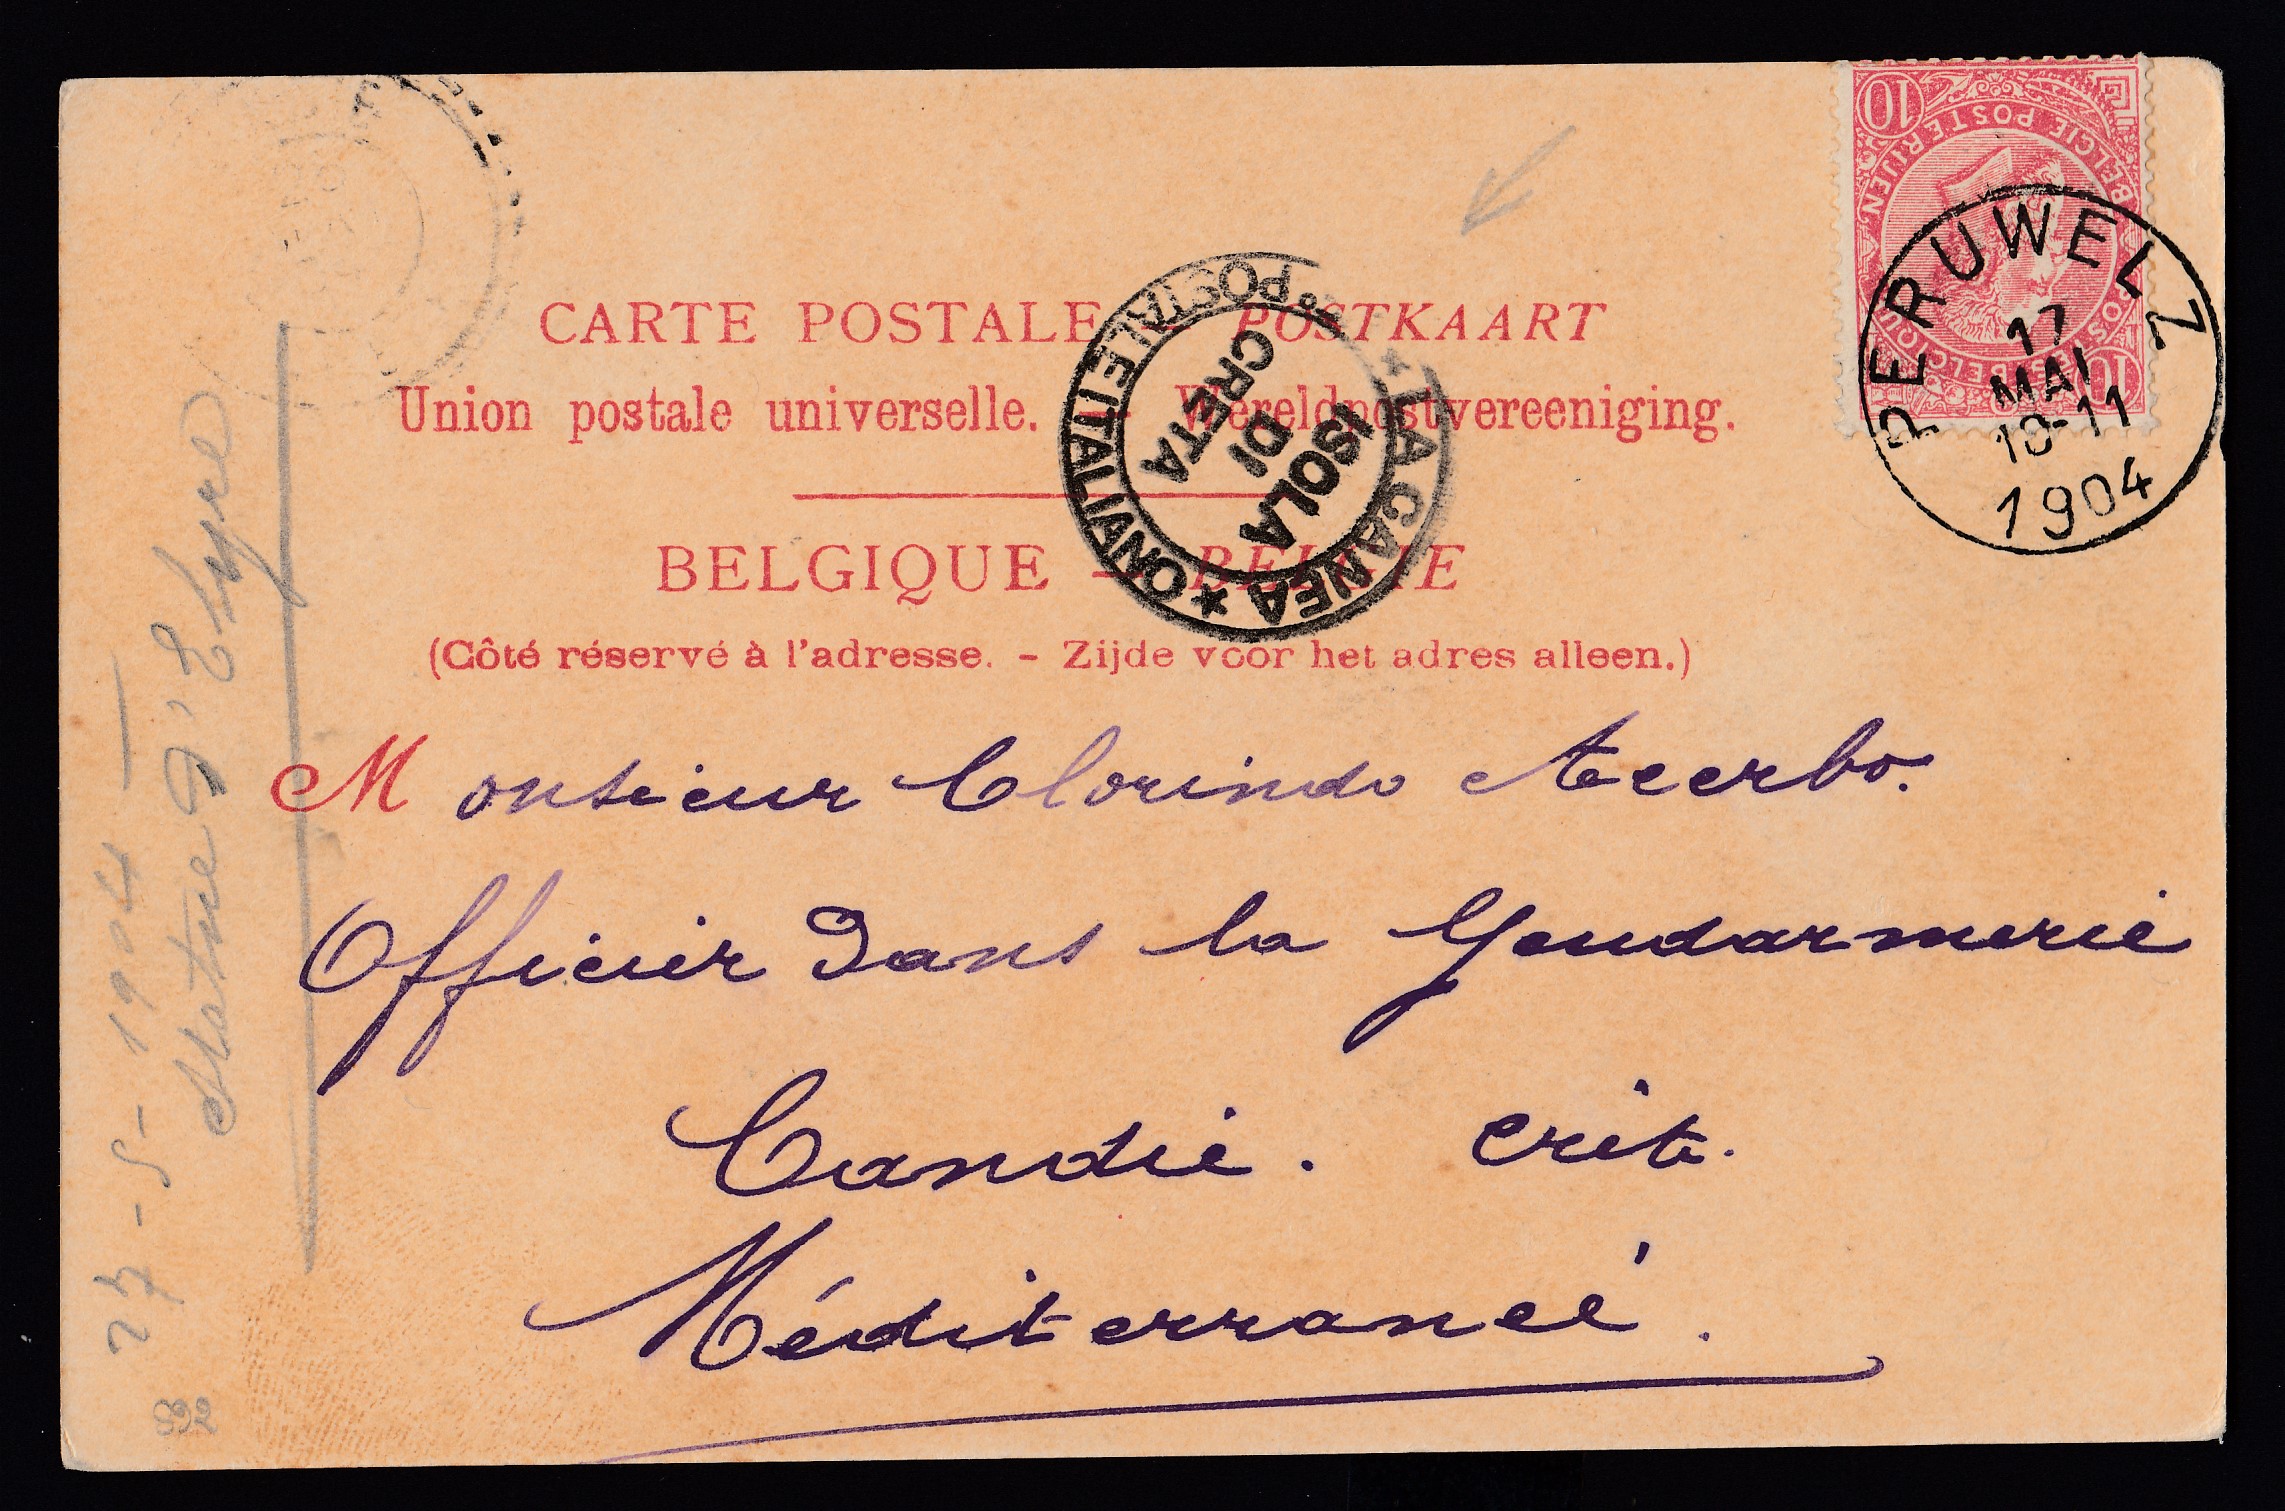 CARTE POSTALE — POSTKAART
Union postale universelle. — Wereldpostvereeniging.
BELGIQUE — BELGIE
(Côté réservé à l'adresse. - Zijde voor het adres alleen.)
Monsieur Clorindo Acerbo.
Officier dans la Gendarmerie
Candie. Crète.
Méditerranée.
PERUWELZ
17
MAI
10-11
1904
10
POSTES BELGIQUE
BELGIE POSTERIJEN
10
POSTALE ITALIANO
LA CANEA
ISOLA
DI
CRETA
27-5-1904